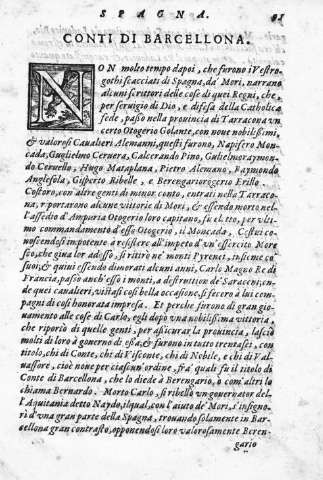 SPAGNA.
CONTI DI BARCELLONA.
NON molto tempo dapoi, che furono i Vestro-
gothi scacciati di Spagna, da' Mori, narrano
alcuni scrittori delle cose di quei Regni, che,
per seruigio di Dio, e difesa della Catholica
fede, passò nella prouincia di Tarracona vn
certo Otogerio Golante, con noue nobilissimi,
& valorosi Caualieri Alemanni, questi furono, Napifero Mon-
cada, Guglielmo Ceruera, Galcerando Pino, Guglielmo raymon-
do Ceruello, Hugo Mataplana, Pietro Alemano, Raymondo
Anglesola, Gisperto Ribelle, e Berengario rogerio Erillo.
Costoro, con altre genti di minor conto, entrati nella Tarraco-
na, riportarono alcune vittorie di Mori, & essendo morto nel-
l'assedio d'Ampuria Otogerio loro capitano, fu eletto, per vlti-
mo commandamento d'esso Otogerio, il Moncada. Costui co-
noscendosi impotente a resistere all'impeto d'vn'essercito More
sco, che giua lor adosso, si ritirò ne' monti Pyrenei, insieme co'
suoi, & quiui essendo dimorati alcuni anni, Carlo Magno Re di
Francia, passò anch'esso i monti, a destruttion de' Saraceni, on-
de quei caualieri, vistasi così bella occasione, si fecero a lui com-
pagni di così honorata impresa. Et perche furono di gran gio-
uamento alle cose di Carlo, egli dopò vna nobilissima vittoria,
che riportò di quelle genti, per assicurar la prouincia, lasciò
molti di loro à gouerno di essa, & furono in tutto trentasei, con
titolo, chi di Conte, chi di Visconte, chi di Nobile, e chi di Val-
uassore, cioè noue per ciascun'ordine, fra' quali fu il titolo di
Conte di Barcellona, che lo diede à Berengario, ò com'altri lo
chiama Bernardo. Morto Carlo, si ribellò vn gouernator del-
l'Aquitania detto Naydo, ilqual, con l'aiuto de' Mori, s'insigno-
rì d'vna gran parte della Spagna, trouando solamente in Bar-
cellona gran contrasto, opponendosi loro valorosamente Beren-
gario